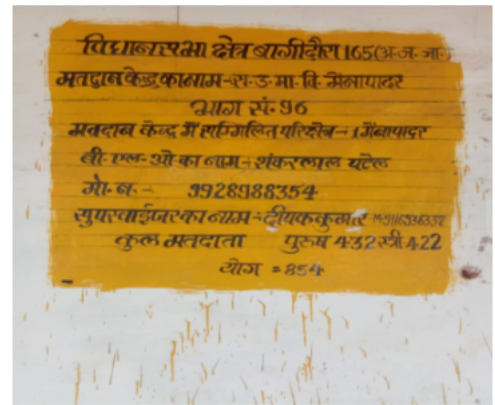 विधानसभा क्षेत्र बागीदौरा 165(अ.ज.जा.)
मतदान केन्द्र का नाम-रा.उ.मा.वि. मैनापादर
भाग सं. 96
मतदान केन्द्र में सम्मिलित परिक्षेत्र-1 मैनापादर
बी.एल.ओ का नाम-शंकरलाल पटेल
मो.नं.- 9928988354
सुपरवाईजर का नाम-दीपककुमार
कुल मतदाता पुरुष 432 स्त्री 422
योग = 854